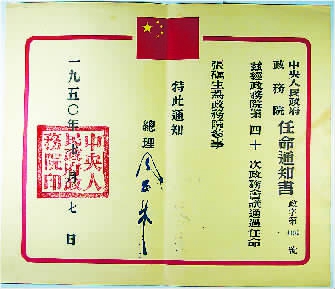 中央人民政府
政務院
任命通知書
政字第 號
茲經政務院第四十次政務會議通過任命
張福生為政務院參事
特此通知
總理
一九五〇年七月七日
中央人民政府政務院印